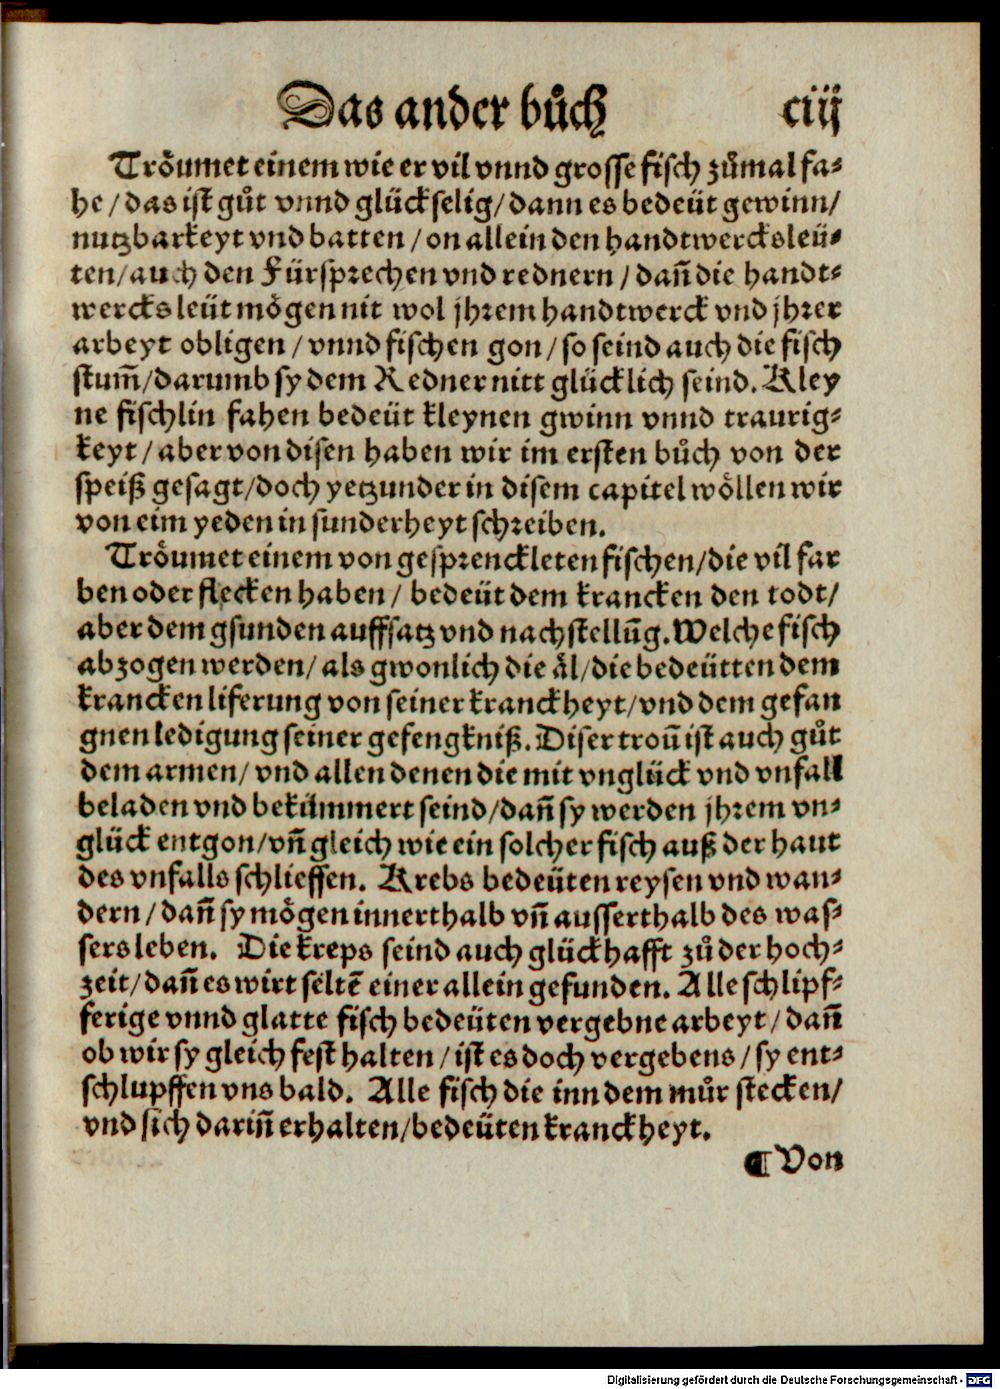 Das ander bůch ciij
Tröumet einem wie er vil vnnd grosse fisch zůmal fa-
he / das ist gůt vnnd glückselig / dann es bedeüt gewinn /
nutzbarkeyt vnd batten / on allein den handtwercksleü-
ten / auch den Fürsprechen vnd rednern / dañ die handt-
wercksleüt mögen nit wol jhrem handtwerck vnd jhrer
arbeyt obligen / vnnd fischen gon / so seind auch die fisch
stum̃ / darumb sy dem Redner nitt glücklich seind. Kley
ne fischlin fahen bedeüt kleynen gwinn vnnd traurig-
keyt / aber von disen haben wir im ersten bůch von der
speiß gesagt / doch yetzunder in disem capitel wöllen wir
von eim yeden in sunderheyt schreiben.
Tröumet einem von gesprenckleten fischen / die vil far
ben oder flecken haben / bedeüt dem krancken den todt /
aber dem gsunden auffsatz vnd nachstellũg. Welche fisch
abzogen werden / als gwonlich die äl / die bedeütten dem
krancken liferung von seiner kranckheyt / vnd dem gefan
gnen ledigung seiner gefengkniß. Diser troũ ist auch gůt
dem armen / vnd allen denen die mit vnglück vnd vnfall
beladen vnd bekümmert seind / dañ sy werden jhrem vn-
glück entgon / vñ gleich wie ein solcher fisch auß der haut
des vnfalls schlieffen. Krebs bedeüten reysen vnd wan-
dern / dañ sy mögen innerthalb vñ ausserthalb des was-
sers leben. Die kreps seind auch glückhafft zů der hoch-
zeit / dañ es wirt seltẽ einer allein gefunden. Alle schlipf-
ferige vnnd glatte fisch bedeüten vergebne arbeyt / dañ
ob wir sy gleich fest halten / ist es doch vergebens / sy ent-
schlupffen vns bald. Alle fisch die inn dem můr stecken /
vnd sich dariñ erhalten / bedeüten kranckheyt.
¶ Von
Digitalisierung gefördert durch die Deutsche Forschungsgemeinschaft - DFG